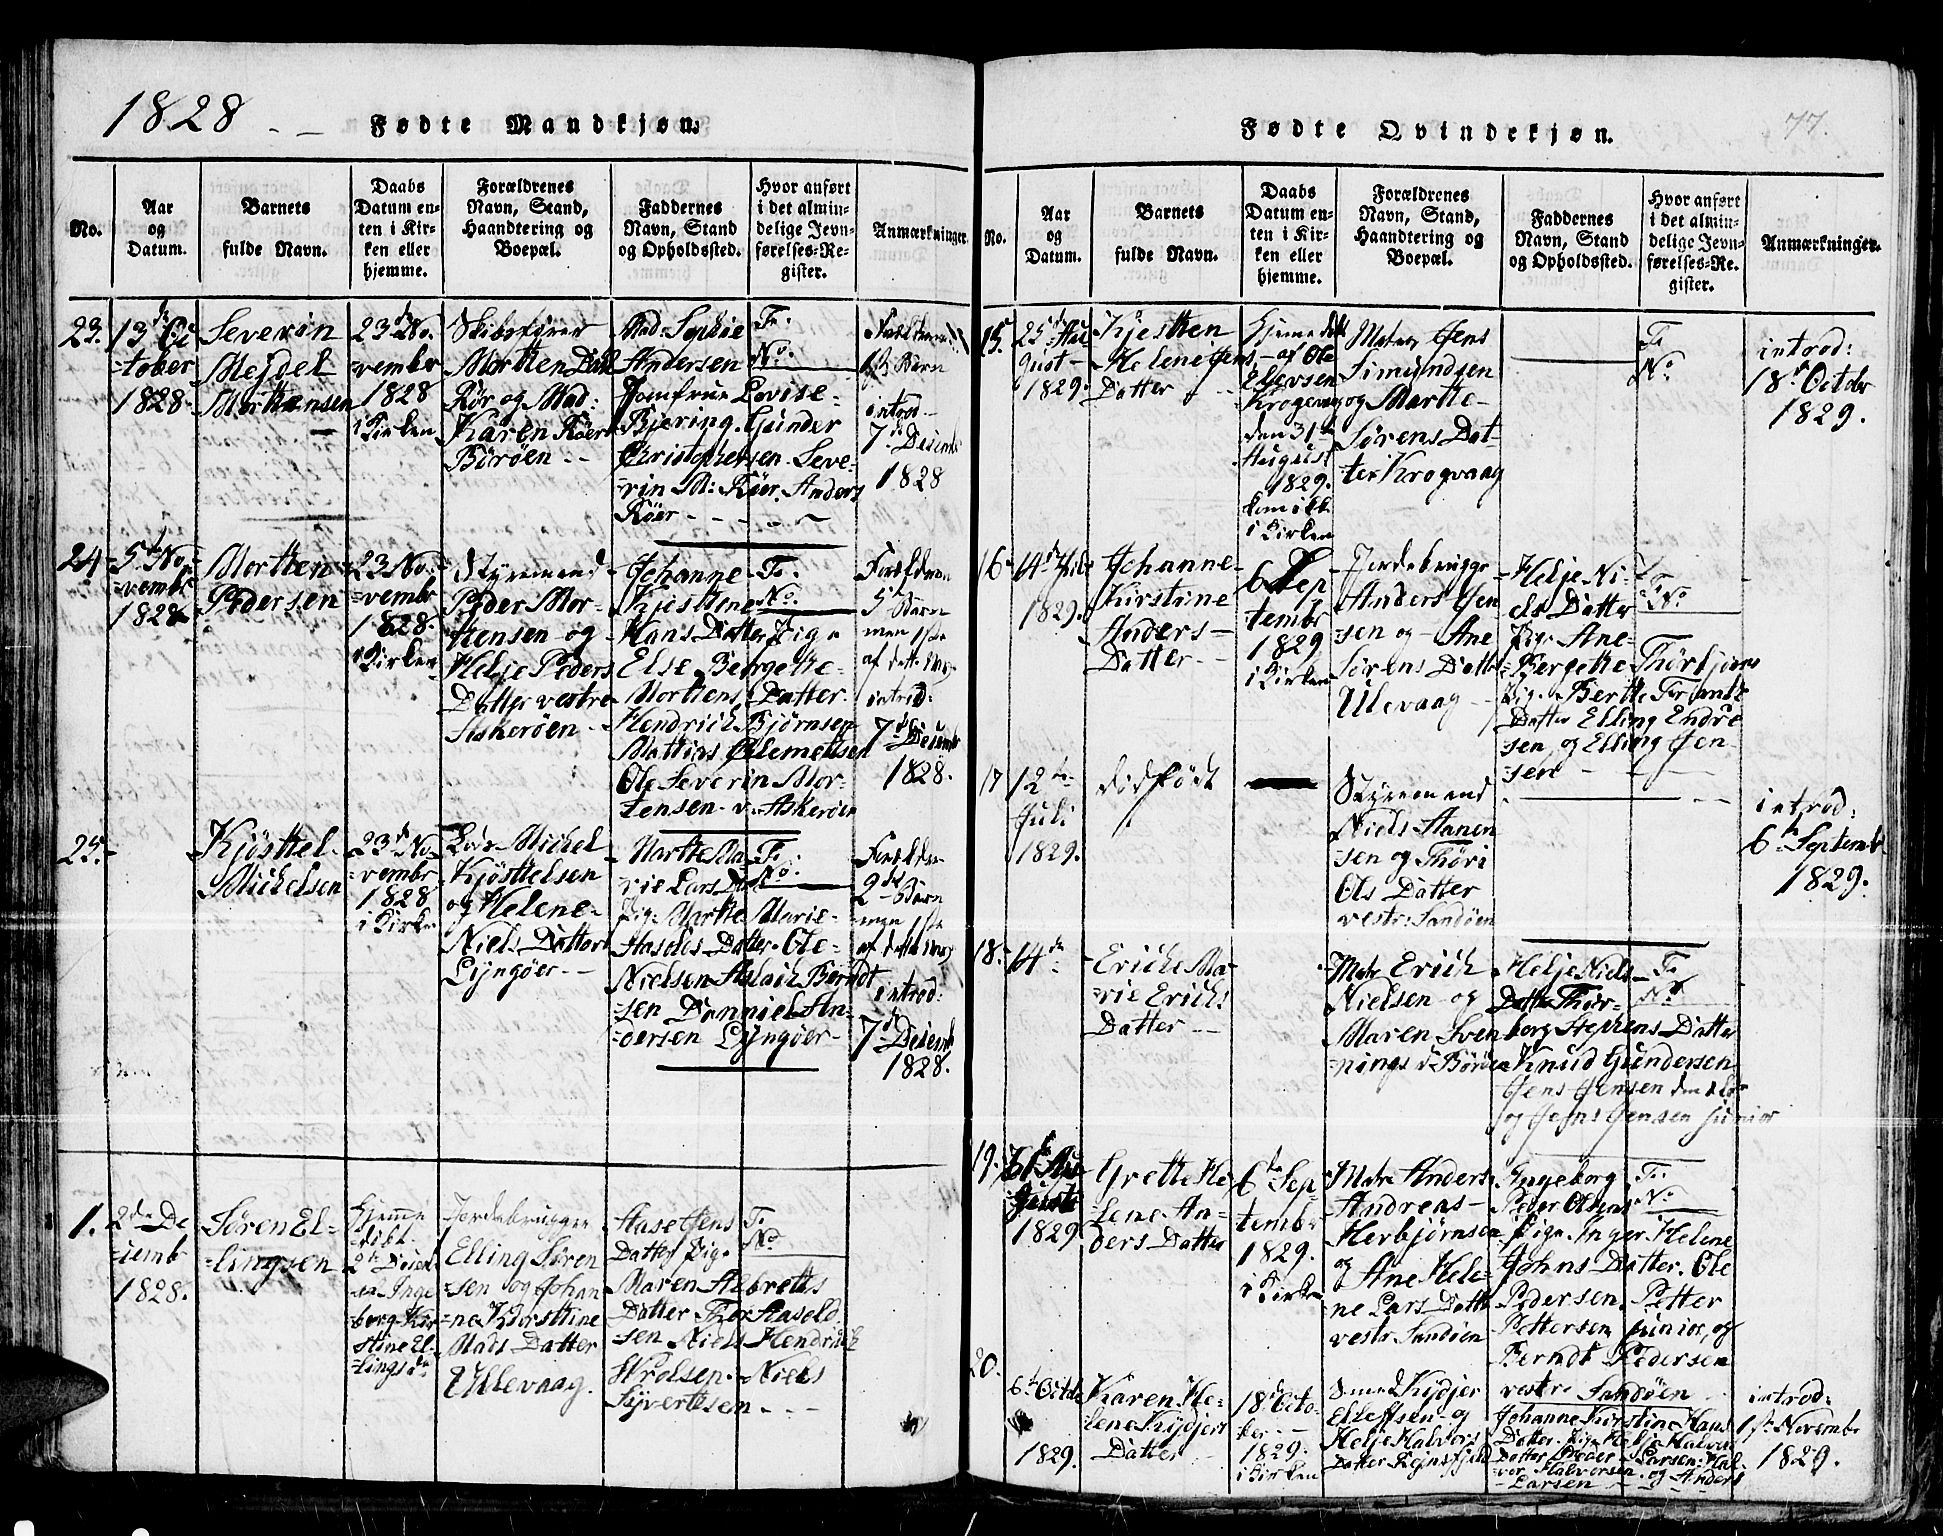 1828 - -
Fødte Mandkjøn.
No.
Aar
og
Datum.
Barnets
fulde Navn.
Daabs
Datum en-
ten i Kir-
ken eller
hjemme.
Forældrenes
Navn, Stand,
Haandtering og
Boepæl.
Faddernes
Navn, Stand
og Opholdssted.
Hvor anført
i det almin-
delige Jevn-
førelses-Re-
gister.
Anmærkninger.
23.
13de Oc
-tober
1828.
Severin
Mejdel
Morttensen
23de No-
=vembr
1828
i Kirken
Skibsfører
Mortten
Röer og Mad:
Karen Röer
Boröen - -
Mad: Sophie
Andersen
Jomfrue Lovise
Bjering. Gunder
Christophersen. Seve-
rin M: Röer. Anders
Röer - - - -
F:
No.
introd:
7de Decemb
1828
24
5te No-
=vembr
1828
Mortten
Pedersen
23 No-
=vembr
1828
i Kirken
Styremand
Peder Mor-
tensen og
Helje Peders
Datter vestre
Askeröen -
Johanne
Kjesttene
Hans Datter Pige
Else Bergette
Morttens Datter
Hendrich Bjørnsen
Mattias Clemetsen
Ole Severin Mor-
tensen v. Askeröen
F:
No.
Forældrene
5 Barn
men 1ste
af dette
introd:
7de Decemb
1828.
25.
Kjösttel
Michelsen
23de No-
=vembr
1828
i Kirken
Lods Michel
Kjösttelsen
og Helene
Niels Datter
Lyngöer - -
Martte Ma-
rie Lars Dat
Pige Martte Marie
Aasolds Datter. Ole
Nielsen Aslach Berndt
=sen Danniel An-
=dersen Lyngöer
F:
No.
Forældre
2det Barn
men 1ste
af dette
introd:
7de Decemb
1828.
1.
2den De
=cemb
1828.
Sören El-
=lingsen
Hjemme
döbt
2den Decemb
af Inge
borg Kir
stine El-
=lingsdr
Jordebruger
Elling Sören
=sen og Johan
=ne Kirsttine
Mads Datter
Ullevaag.
Aase Jens
Datter Pige
Maren Albretts
Datter Thor Aasold
sen Niels Hendrich
Niels
Syvertsen - - -
F:
No.
Fødte Qvindekjøn.
77.
No.
Aar
og
Datum.
Barnets
fulde Navn.
Daabs
Datum en-
ten i Kir-
ken eller
hjemme.
Forældrenes
Navn, Stand,
Haandtering og
Boepæl.
Faddernes
Navn, Stand
og Opholdssted.
Hvor anført
i det almin-
delige Jevn-
førelses-Re-
gister.
Anmærkninger.
15.
25de Au-
gust
1829.
Kjestten
Helene Jens
Datter
Hjemme döbt
af Ole
Elevsen
Krogevaag
den 31te
August
1829.
kom ikke
i Kirken
Matr. Jens
Simundsen
og Martte
Sörens Dat-
ter Krogvaag
F:
No.
introd:
18de Octobr
1829.
16
14de
1829.
Johanne
Kirstine
Anders
Datter - -
6 Sep
tembr
1829
i Kirken
Jordebrugge
Anders Jen
=sen og Ane
Sörens Datt
Ullevaag
Helje Ni-
els Datter
Pige Ane
Bergette Thörbjörns
Pige Bertte
Datter Elling Endre
sen, og Elling Jen-
sen - -
F:
No.
17
12te
Juli
1829.
Dödfödt
Styremand
Niels Aanen
sen og Thöri
Ols Datter
vestr: Sandöen
introd:
6te Septembr
1829.
18.
14de
Erich Ma-
=rie Erichs
Datter - -
Matr Erich
Nielsen og
Maren Sven
=nings d. Böröen
Helje Niels
Datter Thor-
borg Stephens Datter
Knud Gundersen
Jens Jensen den eldre
og Jens Jensen junior
F:
No.
19.
31te Au
gust
1829
Grette He
=lene An-
ders Datter
6te Sep-
tembr
1829.
i Kirken
Matr Anders
Andreas
Herbjörnsen
og Ane Hele-
ne Lars Datter
vestr Sandöen
Ingeborg
Peder Olsens
Pige. Inger Helene
Johns Datter. Ole
Pedersen. Petter
Pettersen junior, og
Berndt Pedersen
vestr Sandöen
F:
No.
20.
6te Octbr
1829.
Karen He-
lene Kydjers
Datter
18de Octo-
ber - -
1829.
i Kirken
Smed Kydjer
Elleffsen og
Helje Halvors
Datter
Johanne Kirstine Hans
Datter. Pige Helje Halvor
Datter Peder Larsen. Hal-
vor Halvorsen og Anders
Larsen
introd:
1ste Novembr
1829.